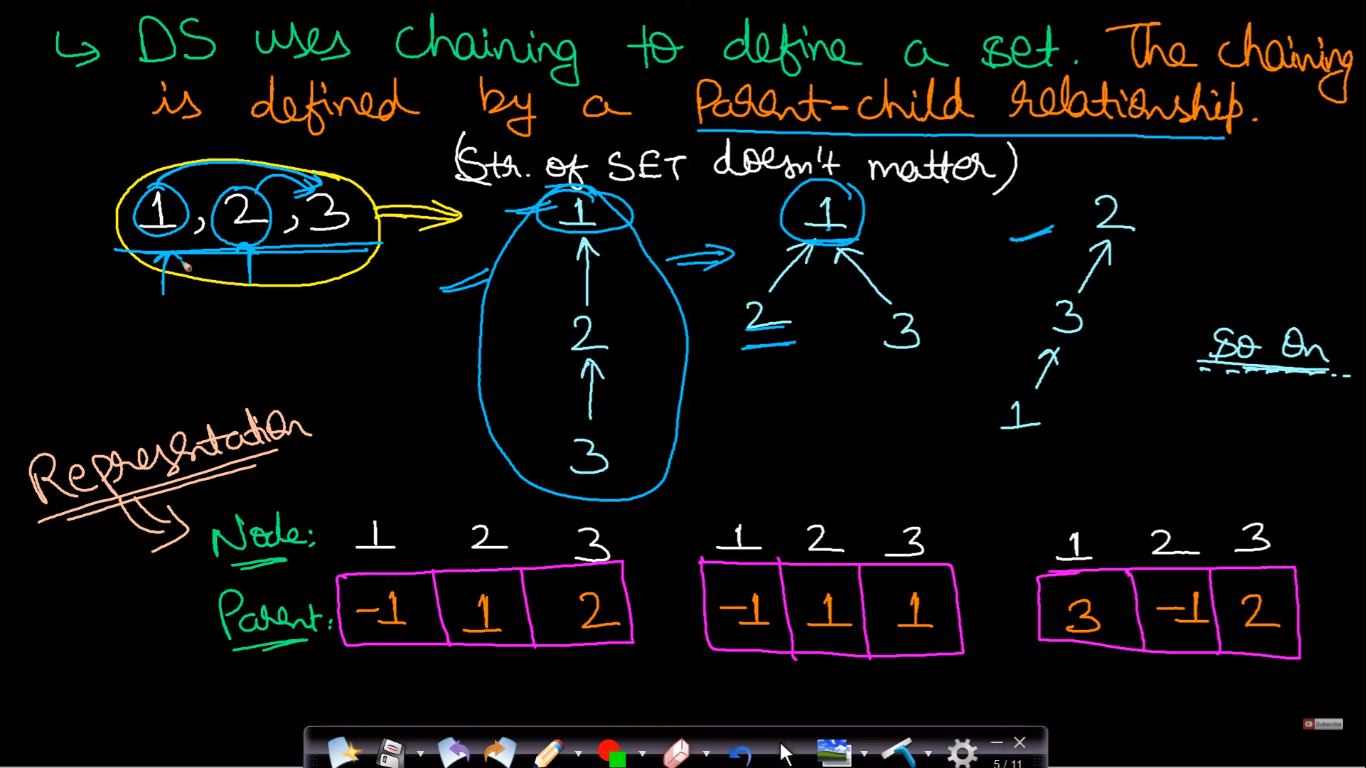 ↳ DS uses chaining to define a set. The chaining
is defined by a Parent-child relationship.
(Str. of SET doesn't matter)
1, 2, 3
1
2
3
1
2 3
2
3
1
So On
Representation
Node: 1 2 3 1 2 3 1 2 3
Parent: -1 1 2 -1 1 1 3 -1 2
Subscribe
5 / 11